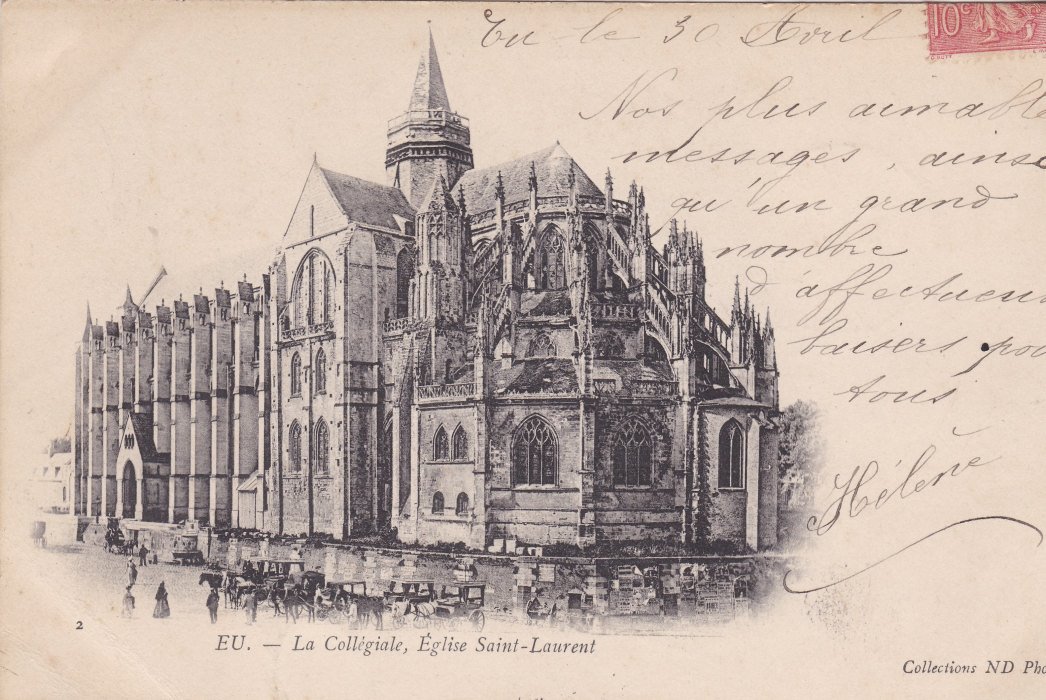 Eu le 30 Avril
10c
Nos plus aimable
messages, ainsi
qu'un grand
nombre
d'affectueux
baisers pour
tous
Hélène
2
EU. — La Collégiale, Église Saint-Laurent
Collections ND Pho